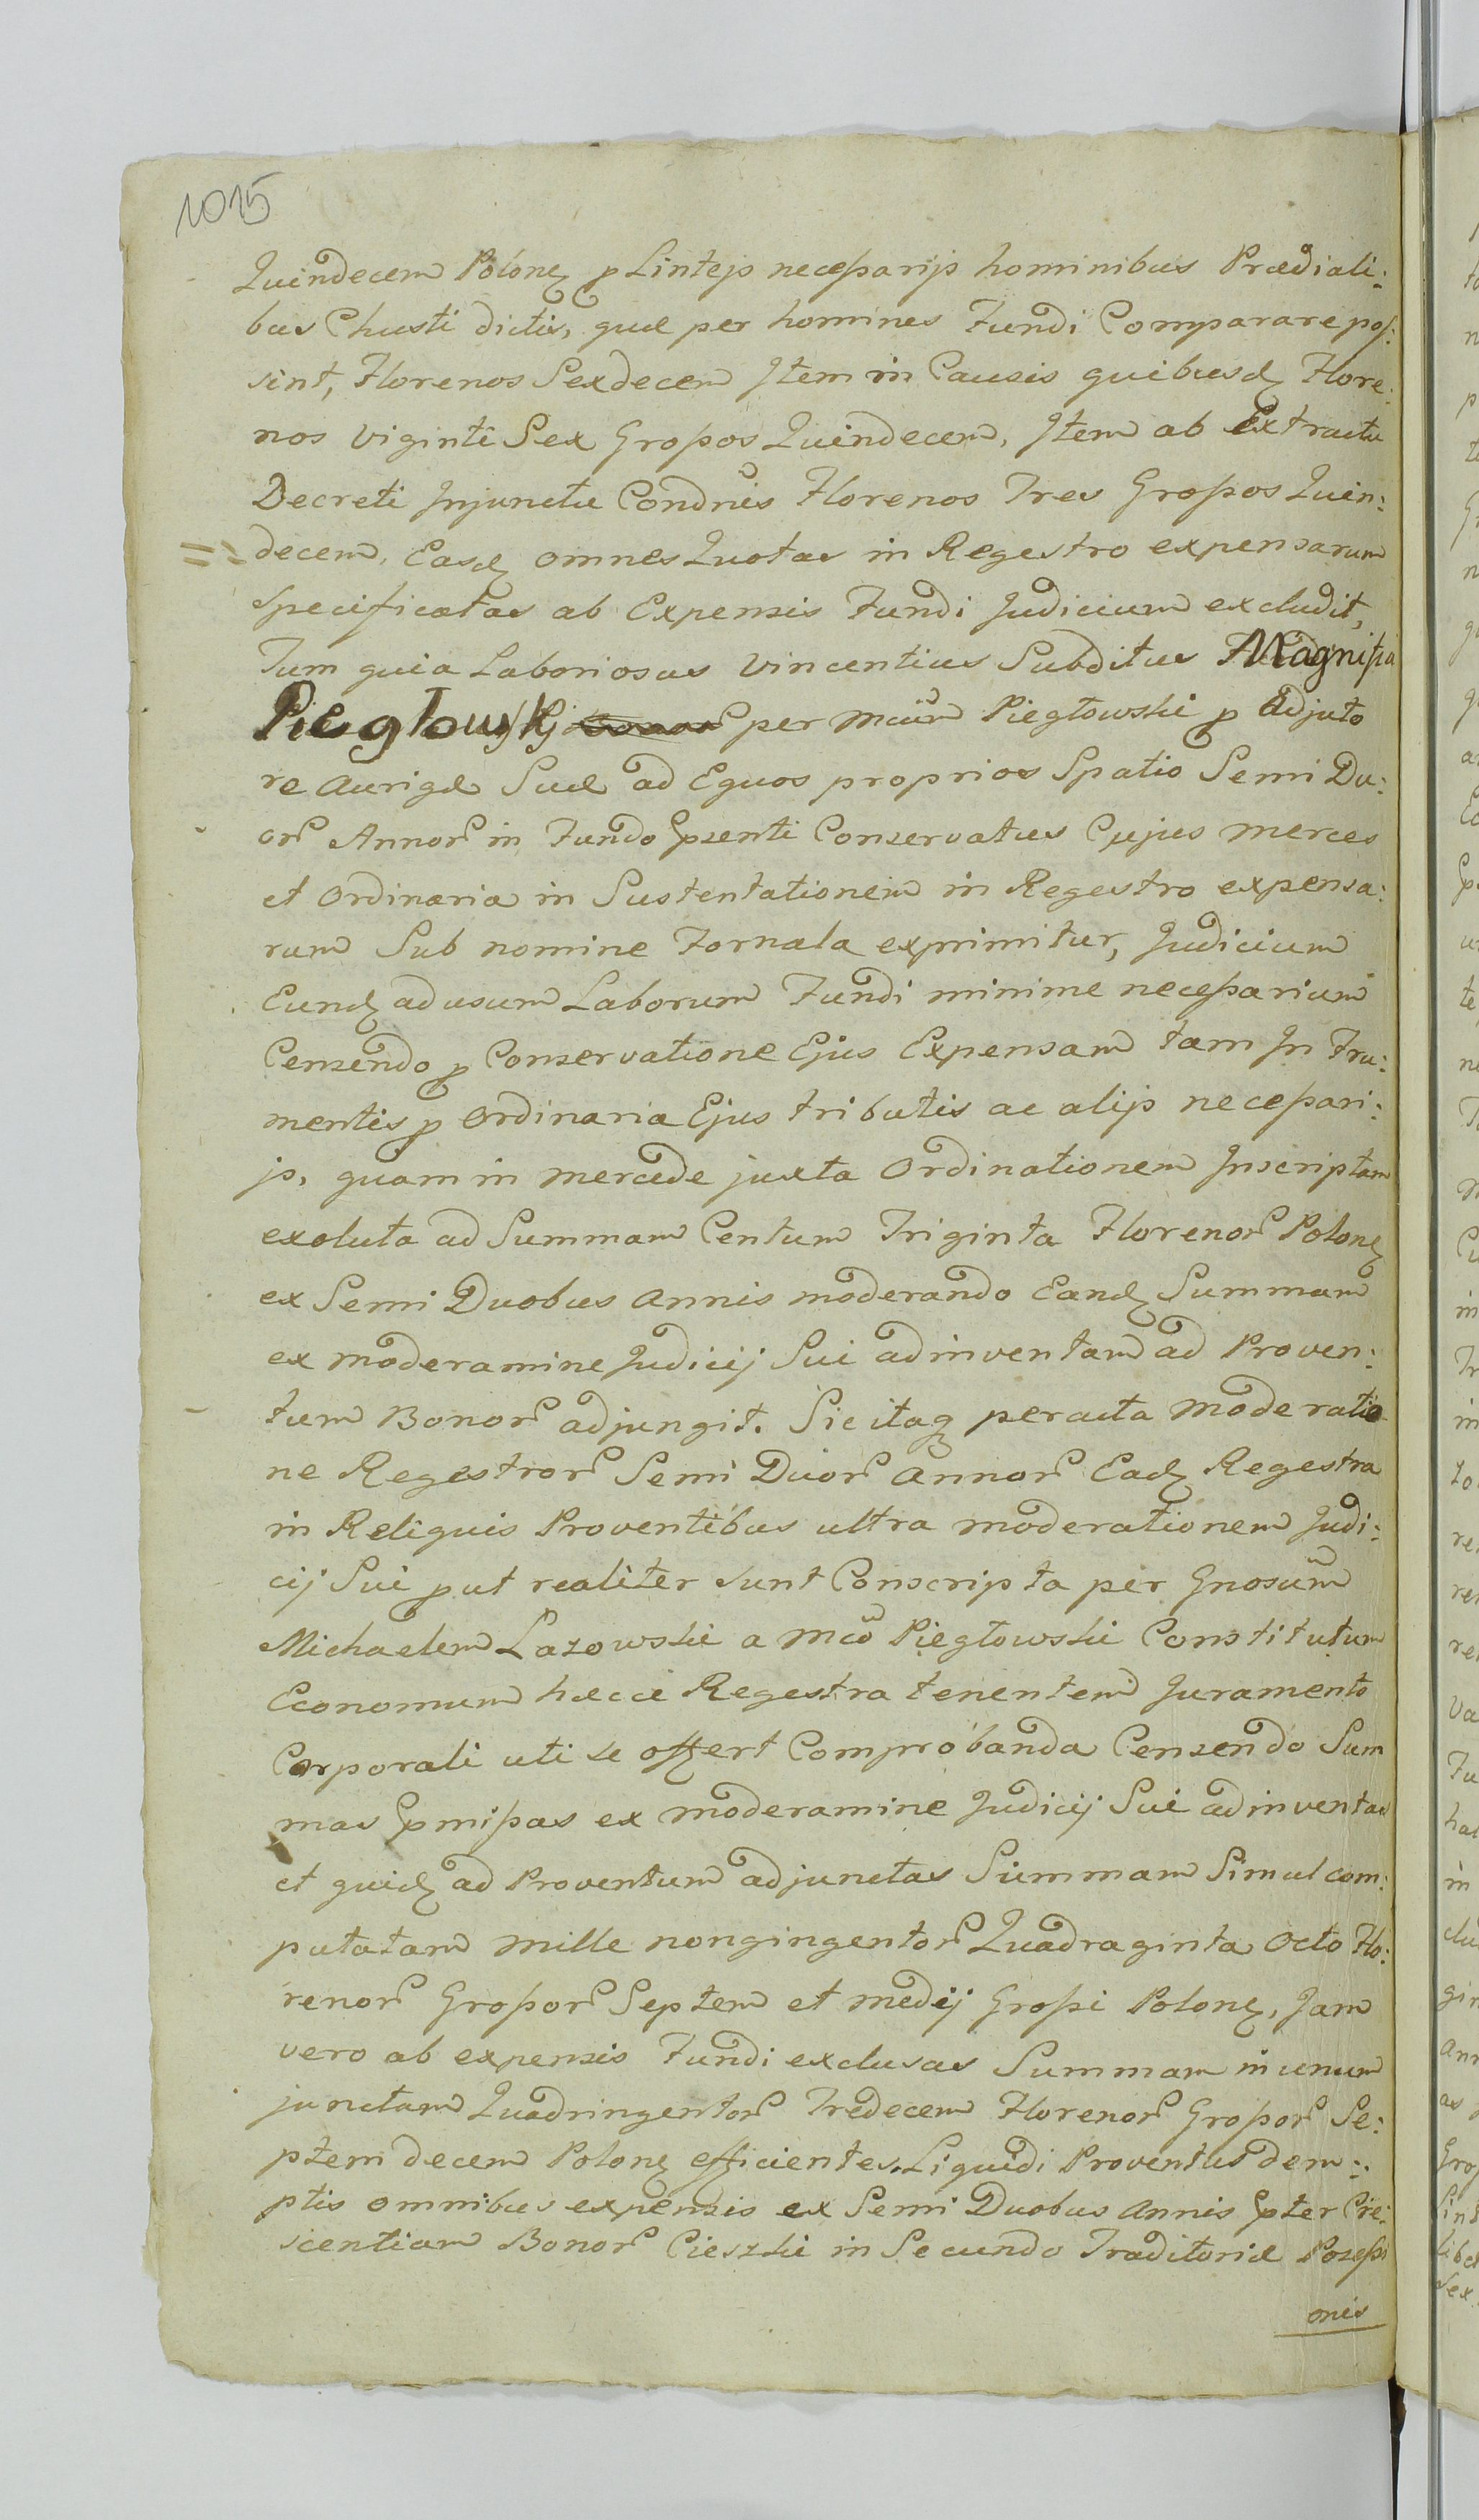 1015
Quindecem Polonq p Lintejs necessarijs hominibus Prædiali:
bus Chusti dictis, quæ per homines Fundi Comparare pos:
sint, Florenos Sexdecem Item in Causis quibusdq Flore:
nos Viginti Sex Grossos Quindecem, Item ab Extractu
Decreti Injunctu Condnis Florenos Tres Grossos Quin:
decem, Easdq omnes Quotas in Regestro expensarum
Specificatas ab Expensis Fundi Judicium excludit,
Tum quia Laboriosus Vincentius Subditus Magnifici
Piegłowskj per Mcum Piegłowski p Adjuto
re Aurigæ Suæ ad Equos proprios Spatio Semi Du:
or Annor in Fundo psenti Conservatus Cujus merces
et Ordinaria in Sustentationem in Regestro expensa:
rum Sub nomine Fornala exprimitur, Judicium
Eundq ad usum Laborum Fundi minime necessarium
Censendo p Conservatione Ejus Expensam tam In Fru:
mentis p Ordinaria Ejus tributis ac alijs necessari:
js, quam in mercede juxta Ordinationem Inscriptam
exoluta ad Summam Centum Triginta Florenor Polonq
ex Semi Duobus Annis moderando Eandq Summam
ex moderamine Judicij Sui adinventam ad Proven:
tum Bonor adjungit. Sic itaq peracta moderatio
ne Regestror Semi Duor Annor Eadq Regestra
in Reliquis Proventibus ultra moderationem Judi:
cij Sui put realiter sunt Conscripta per Gnosum
Michaelem Lazowski a Mco Piegłowski Constitutum
Economum hæcce Regestra tenentem Juramento
Corporali uti se offert Comprobanda Censendo Sum
mas pmissas ex moderamine Judicij Sui adinventas
et quidq ad Proventum adjunctas Summam Simul com:
putatam mille nongingentor Quadraginta Octo Flo:
renor Grossor Septem et medij Grossi Polonq, Jam
vero ab expensis Fundi exclusas Summam in unum
junctam Quadringentor Tredecem Florenor Grossor Se:
ptem decem Polonq efficientes. Liquidi Proventus dem:
ptis omnibus expensis ex Semi Duobus Annis pter Cre:
scentiam Bonor Cieszki in Secundo Traditoriæ Possessi
onis